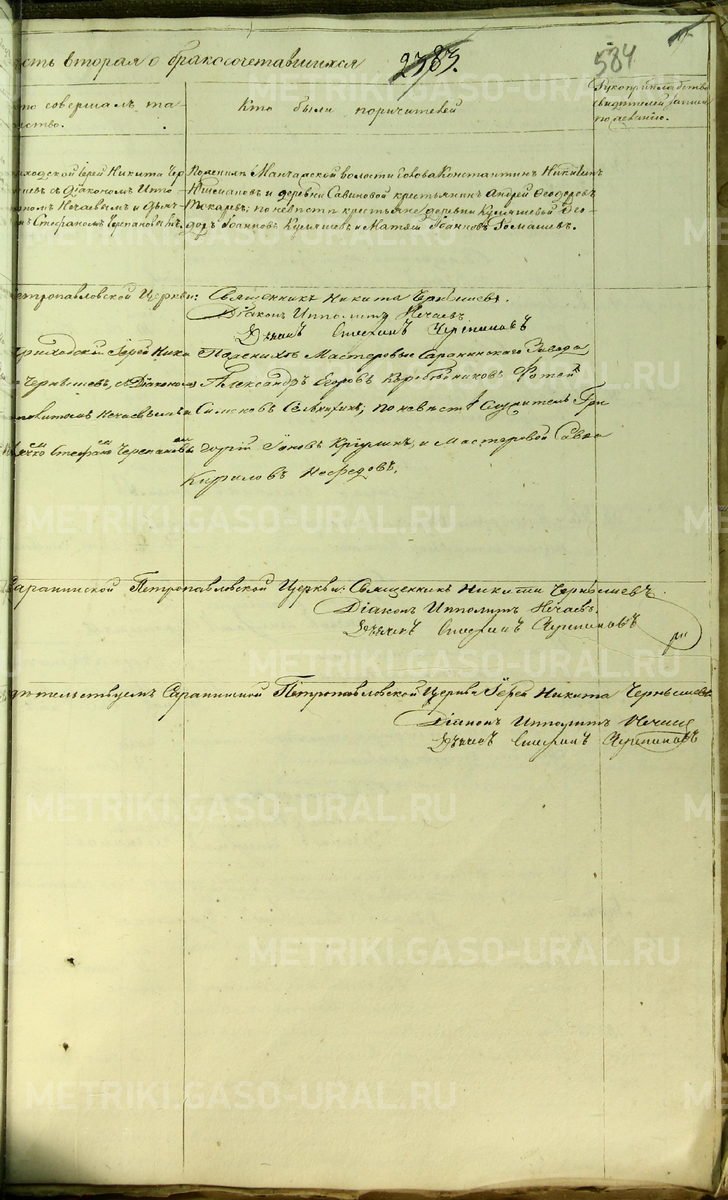 сть вторая о бракосочетавшихся
2383.
584
кто совершалъ та-
инство.
Кто были поручители
Рукоприкладство
свидетелей записи
по желанію.
риходской Іерей Никита Чер
ышевъ съ Діакономъ Иппо-
литомъ Нечаевымъ и дьяч-
Стефаномъ Черепановымъ.
По женихѣ Манчажской волости Голова Константинъ Никитинъ
и деревни Савиновой крестьянинъ Андрей Феодоровъ
Токаревъ; по невѣстѣ крестьяне деревни Куляшевой Фео-
доръ Іоанновъ Куляшевъ и Матвей Іоанновъ
етропавловской Церкви: Священникъ Никита Чернышевъ.
Діаконъ Ипполитъ Нечаевъ
Дьячекъ Стефанъ Черепановъ
Приходской Іерей Ники
Чернышевъ, съ Діакономъ
пполитомъ Нечаевымъ и
Дьячко Стефаномъ Черепановы
По женихѣ Мастеровые Саранинскаго Завода
Александръ Егоровъ Коробейниковъ Фотей
по невѣстѣ Служитель Гри
горій Іоновъ и Мастеровой Савва
Кириловъ
Саранинской Петропавловской Церкви: Священникъ Никита Чернышевъ.
Діаконъ Ипполитъ Нечаевъ.
Дьячекъ Стефанъ Черепановъ
дѣтельствуемъ Саранинской Петропавловской Церкви Іерей Никита Чернышевъ
Діаконъ Ипполитъ Нечаевъ
Дьячекъ Стефанъ Черепановъ
METRIKI.GASO-URAL.RU